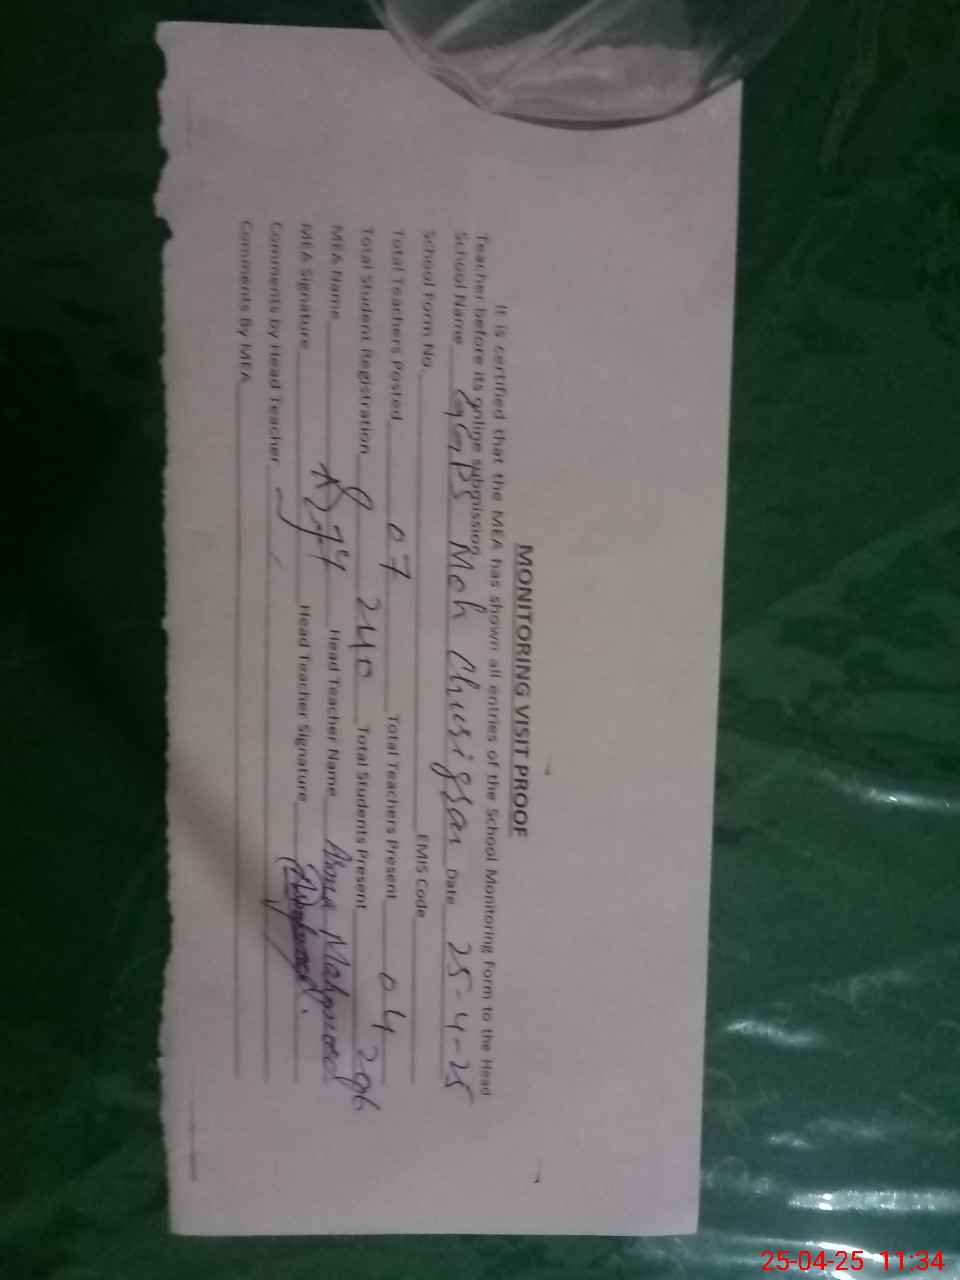 MONITORING VISIT PROOF
It is certified that the MEA has shown all entries of the School Monitoring Form to the Head
Teacher before its online submission.
School Name GGPS Moh Date 25-4-25
School Form No. EMIS Code
Total Teachers Posted 07 Total Teachers Present 04
Total Student Registration 240 Total Students Present
MEA Name Head Teacher Name Asma
MEA Signature Head Teacher Signature
Comments by Head Teacher
Comments By MEA
25-04-25 11:34